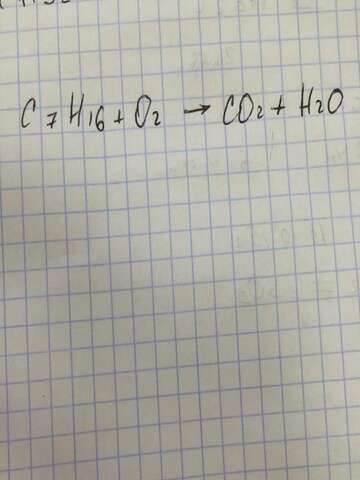 C7H16 + O2 → CO2 + H2O